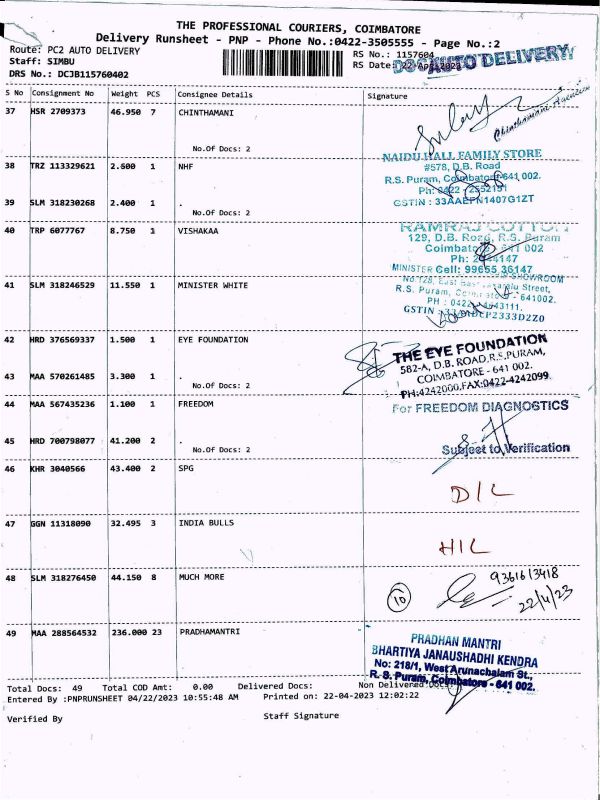 THE PROFESSIONAL COURIERS, COIMBATORE
Delivery Runsheet - PNP - Phone No.:0422-3505555 - Page No.:2
Route: PC2 AUTO DELIVERY
RS No.: 1157604
Staff: SIMBU
RS Date: 22-Apr-2023
AUTO DELIVERY
DRS No.: DCJB115760402
S No Consignment No Weight PCS Consignee Details Signature
37 HSR 2709373 46.950 7 CHINTHAMANI
Chinthamani
No.Of Docs: 2
NAIDU HALL FAMILY STORE
38 TRZ 113329621 2.600 1 NHF
#578, D.B. Road
R.S. Puram, Coimbatore-641 002.
Ph: 0422 - 2552191
39 SLM 318230268 2.400 1 .
GSTIN : 33AAEFN1407G1ZT
No.Of Docs: 2
40 TRP 6077767 8.750 1 VISHAKAA
RAMRAJ COTTON
129, D.B. Road, R.S. Puram
Coimbatore - 641 002
Ph:
MINISTER Cell: 99655 36147
SHOWROOM
41 SLM 318246529 11.550 1 MINISTER WHITE
No.128, East
Street,
R.S. Puram, Coimbatore - 641002.
PH : 0422
GSTIN :
42 HRD 376569337 1.500 1 EYE FOUNDATION
THE EYE FOUNDATION
582-A, D.B. ROAD,R.S.PURAM,
COIMBATORE - 641 002.
43 MAA 570261485 3.300 1 .
PH:4242000,FAX:0422-4242099
No.Of Docs: 2
44 MAA 567435236 1.100 1 FREEDOM
For FREEDOM DIAGNOSTICS
45 HRD 700798077 41.200 2 .
No.Of Docs: 2
Subject to Verification
46 KHR 3040566 43.400 2 SPG
D/L
47 GGN 11318090 32.495 3 INDIA BULLS
H/L
48 SLM 318276450 44.150 8 MUCH MORE
9361613418
10
22/4/23
49 MAA 288564532 236.000 23 PRADHAMANTRI
PRADHAN MANTRI
BHARTIYA JANAUSHADHI KENDRA
No: 218/1, West Arunachalam St.,
R. S. Puram, Coimbatore - 641 002.
Total Docs: 49 Total COD Amt: 0.00 Delivered Docs: Non Delivered
Entered By :PNPRUNSHEET 04/22/2023 10:55:48 AM Printed on: 22-04-2023 12:02:22
Verified By Staff Signature